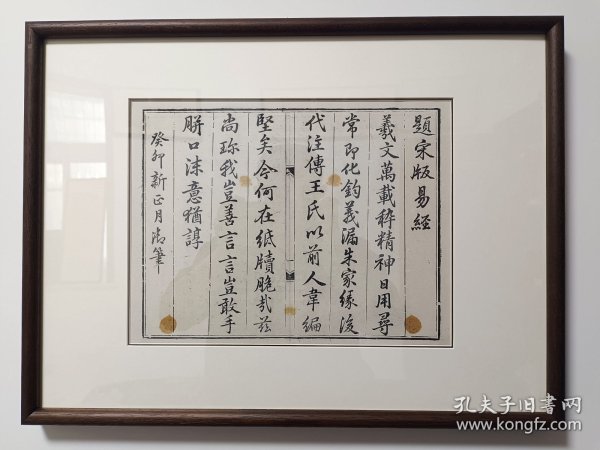 題宋版易經
羲文萬載稱精神日用尋
常即化鈞義漏朱家緣後
代注傳王氏以前人韋編
堅矣今何在紙牘脆哉茲
尚珍我豈善言言豈敢手
胼口沫意猶諄
癸卯新正月御筆
孔夫子旧书网
www.kongfz.com